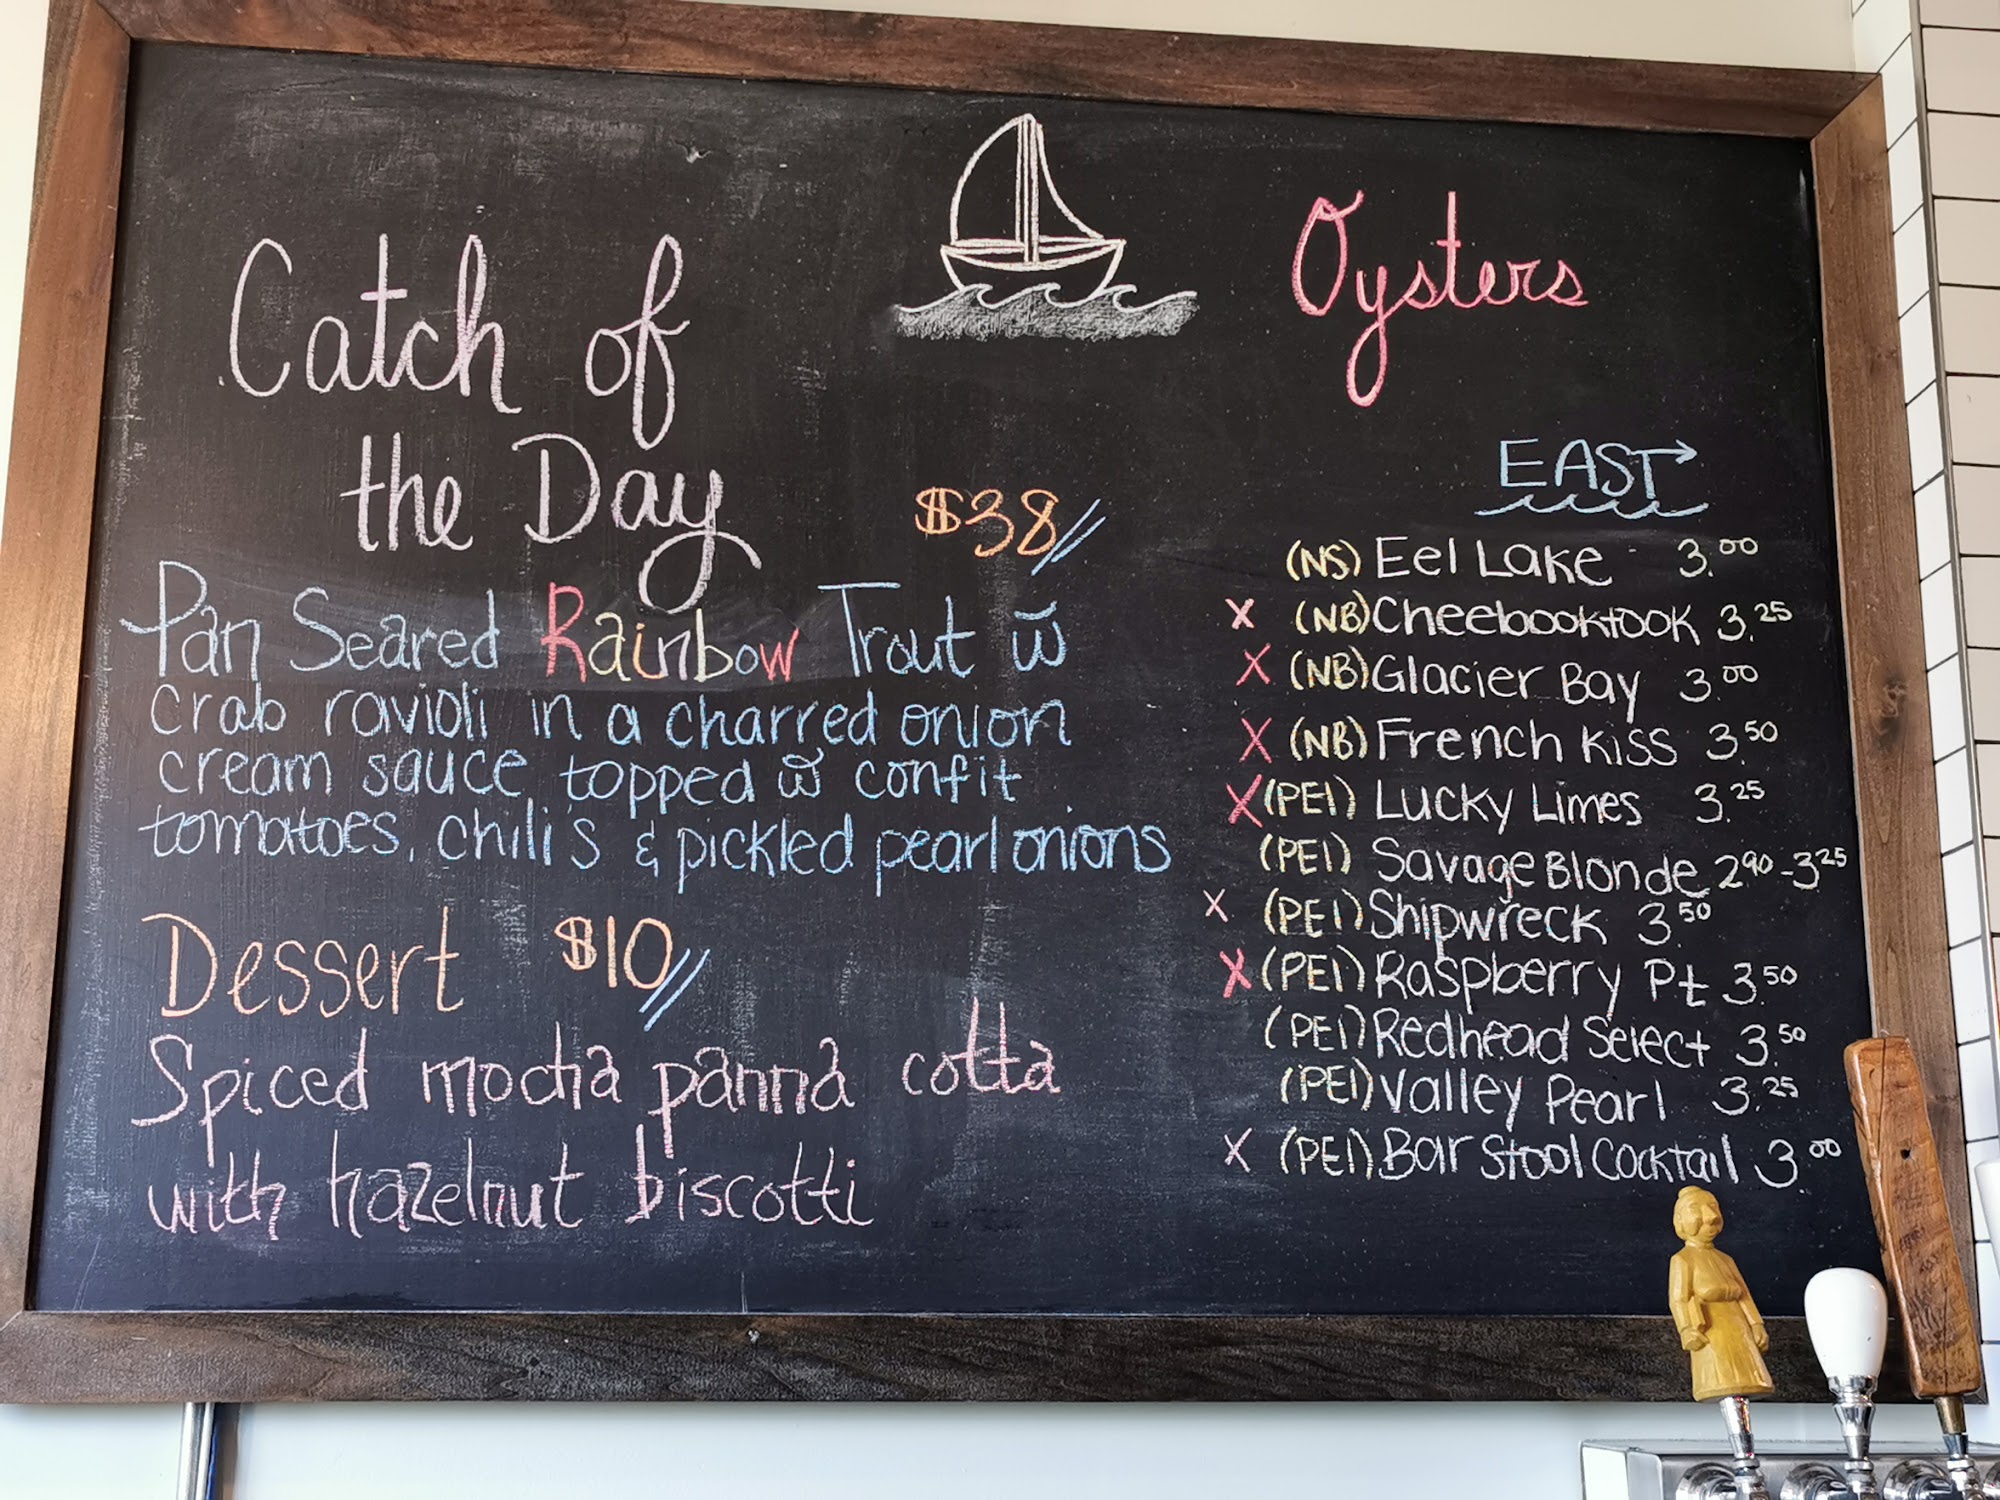 Catch of
the Day
$38
Pan Seared Rainbow Trout w̅
crab ravioli in a charred onion
cream sauce topped w̅ confit
tomatoes, chili's & pickled pearl onions
Dessert $10
Spiced mocha panna cotta
with hazelnut biscotti
Oysters
EAST
(NS) Eel Lake 3.00
X (NB) Cheebooktook 3.25
X (NB) Glacier Bay 3.00
X (NB) French Kiss 3.50
X (PEI) Lucky Limes 3.25
(PEI) Savage Blonde 2.90-3.25
X (PEI) Shipwreck 3.50
X (PEI) Raspberry Pt 3.50
(PEI) Redhead Select 3.50
(PEI) Valley Pearl 3.25
X (PEI) Bar Stool Cocktail 3.00